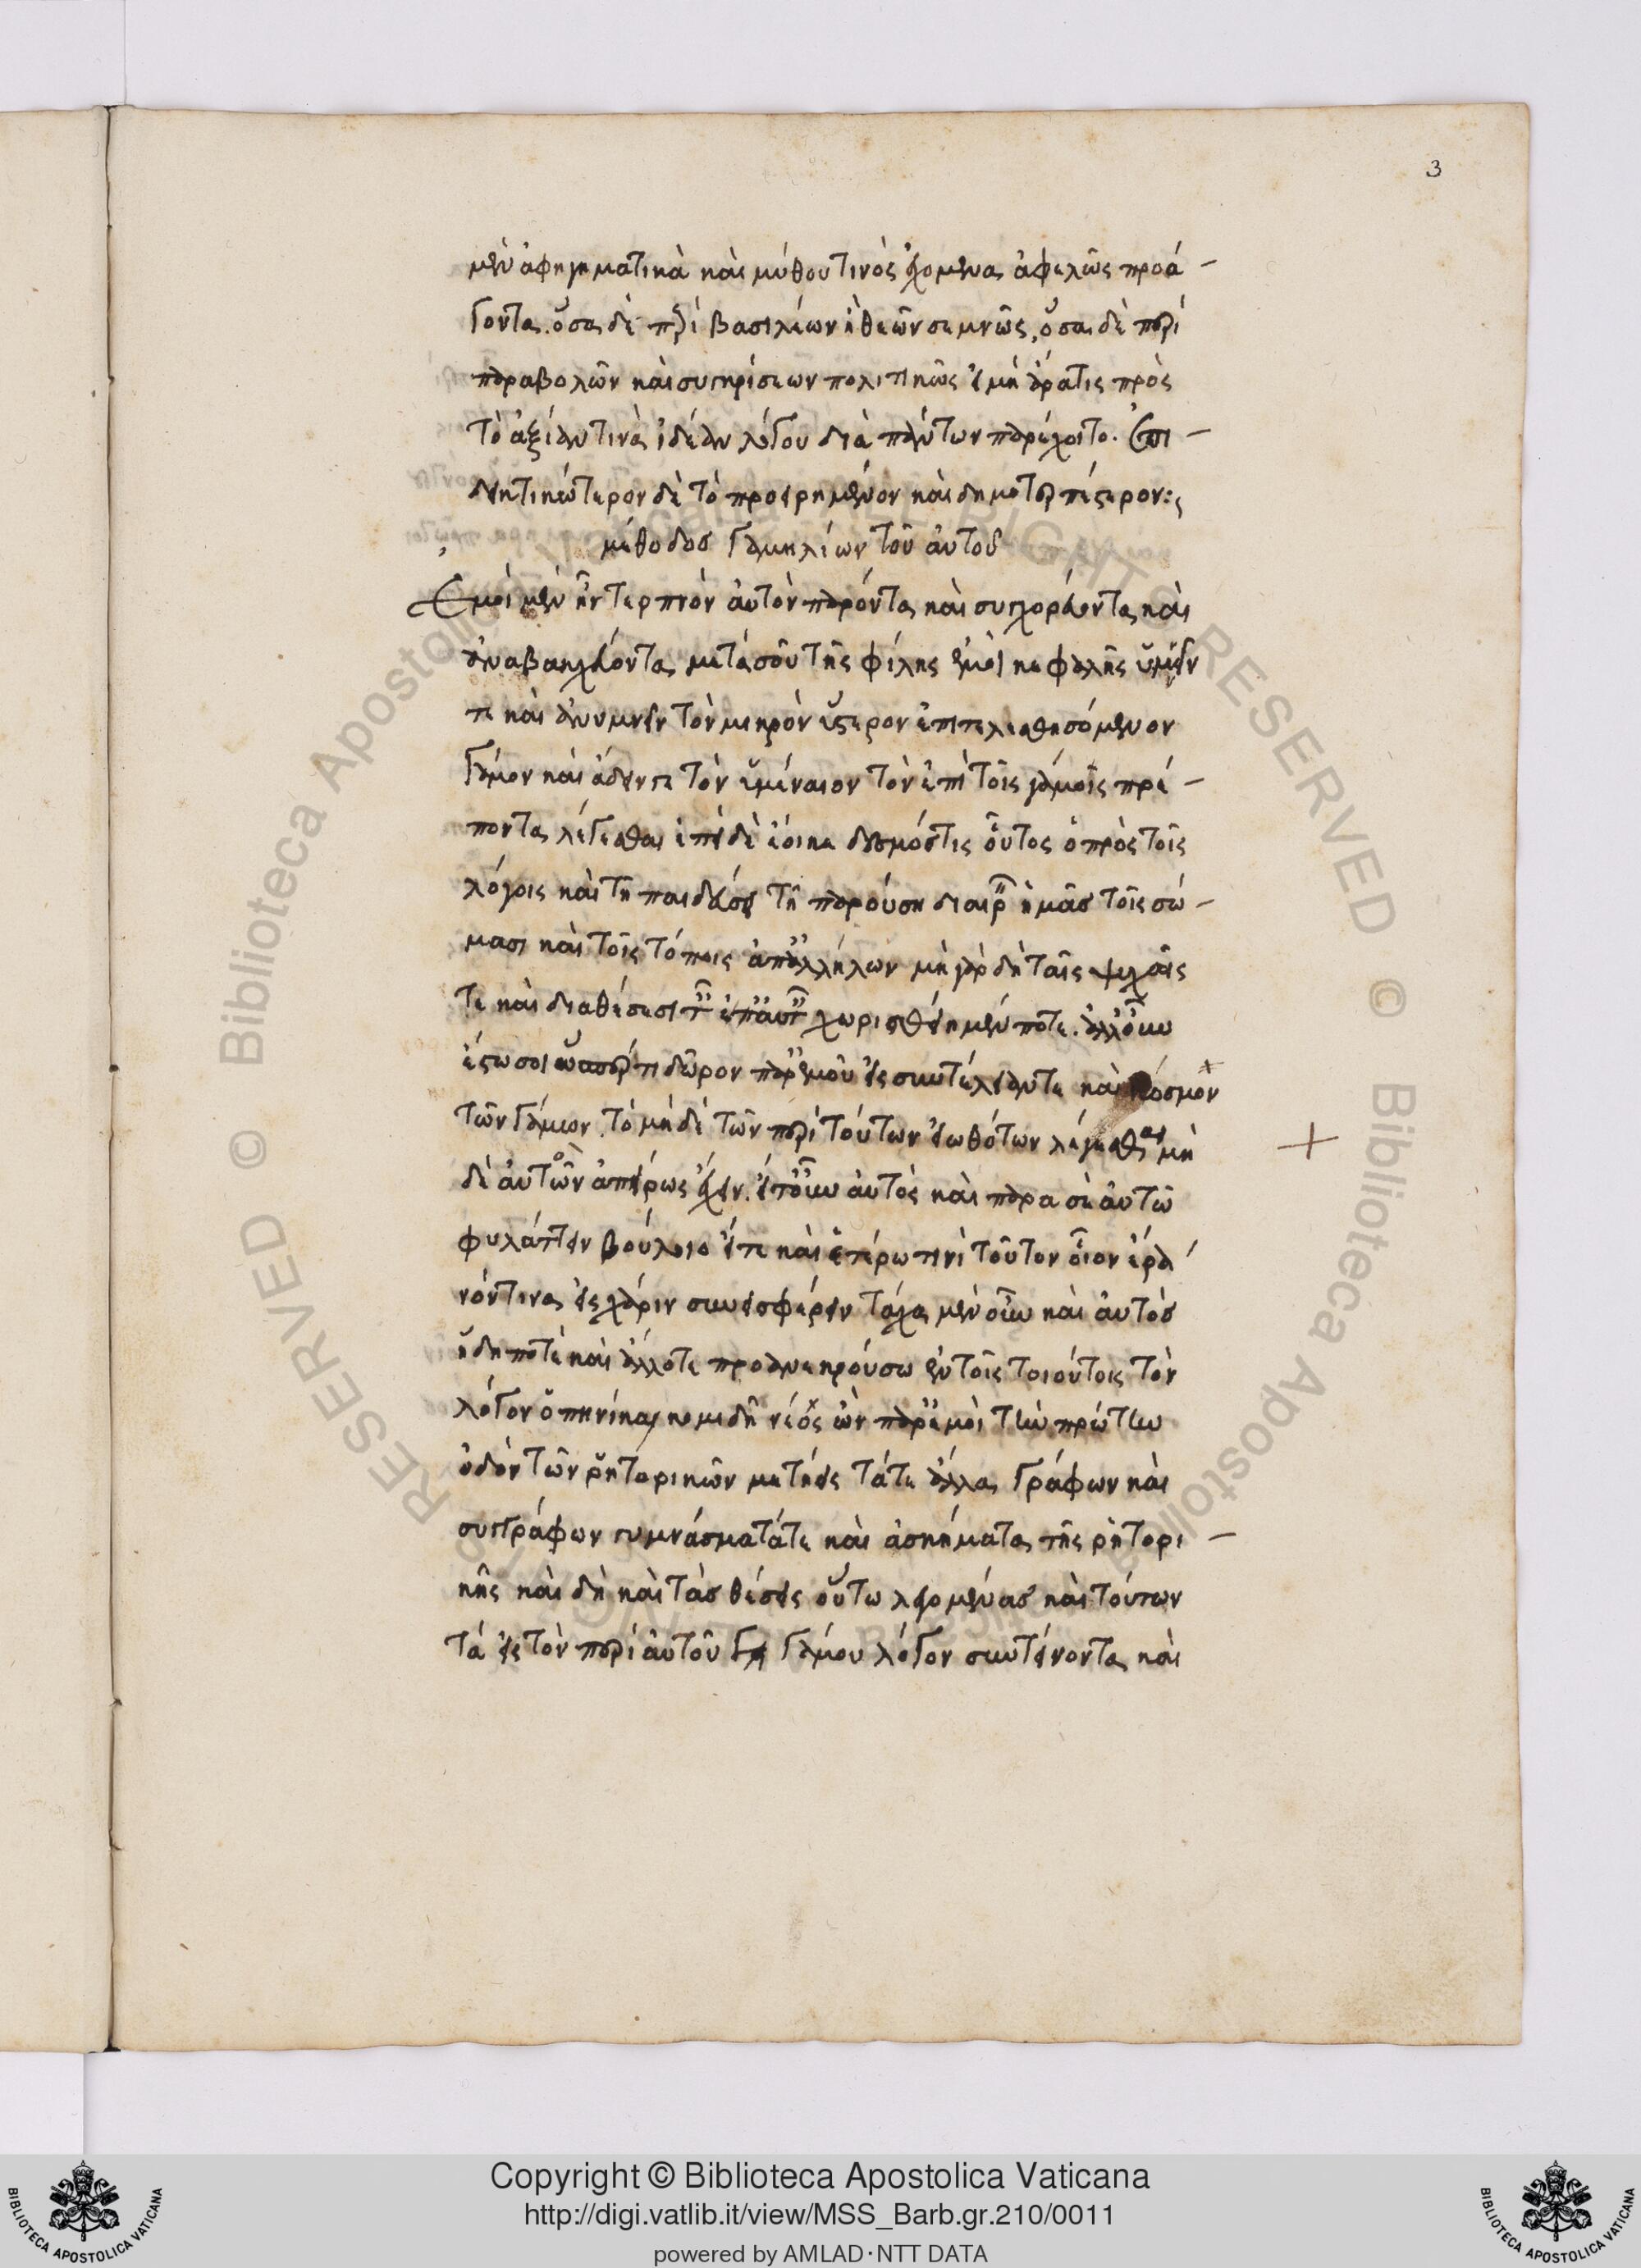 3
μὲν ἀφηγηματικὰ καὶ μύθου τινὸς ἐχόμενα ἀφελῶς προά-
γοντα. ὅσα δὲ περὶ βασιλέων ἢ θεῶν σεμνῶς, ὅσα δὲ περὶ
παραβολῶν καὶ συγκρίσεων πολιτικῶς εἰ μὴ ἄρα τις πρὸς
τὸ ἀξίαν τινὰ ἰδέαν λόγου διὰ πάντων παρέχοιτο. Ἐπι-
δεικτικώτερον δὲ τὸ προειρημένον καὶ
μέθοδοσ γαμηλίων τοῦ αὐτοῦ
Ἐμοὶ μὲν ἦν τερπνὸν αὐτὸν παρόντα καὶ συγχορεύοντα καὶ
ἀναβακχεύοντα μετὰ σοῦ τῆς φίλης ἐμοὶ κεφαλῆς ὑμνεῖν
τε καὶ ἀνυμνεῖν τὸν μικρὸν ὕστερον ἐπιτελεσθησόμενον
γάμον καὶ ἄδειν τε τὸν ὑμέναιον τὸν ἐπὶ τοῖς γάμοις πρέ-
ποντα λέγεσθαι ἐπεὶ δὲ ἔοικε δεσμός τις οὗτος ὁ πρὸς τοῖς
λόγοις καὶ τῇ παιδεύσει τῇ παρούσῃ διαιρεῖν ἡμᾶσ τοῖς σώ-
μασι καὶ τοῖς τόποις ἀπ' ἀλλήλων μὴ γὰρ δὴ ταῖς ψυχαῖς
τε καὶ διαθέσεσι χωρισθείημέν ποτε. ἀλλ' οὖν
ἔστω σοι ὥσπερ τι δῶρον παρ' ἐμοῦ εἰς συντέλειάν τε καὶ κόσμον
τῶν γάμων. τὸ μηδὲ τῶν περὶ τούτων εἰωθότων λέγεσθαι μη
δὲ αὐτὸν ἀπείρως ἔχειν. εἴτ' οὖν αὐτὸς καὶ παρα σὲ αὐτῶ
φυλάττειν βούλοιο εἴτε καὶ ἑτέρω τινὶ τοῦτον οἷον ἔρα
νόν τινα εἰς χάριν συνεισφέρειν τάχα μὲν οὖν καὶ αὐτόσ
ἤδη ποτὲ καὶ ἄλλοτε προανεκρούσω ἐν τοῖς τοιούτοις τὸν
λόγον ὁπηνίκα κομιδῆ νέος ὢν παρ' ἐμοὶ τὴν πρώτην
ὁδὸν τῶν ῥητορικῶν μετῄεις τά τε ἄλλα γράφων καὶ
συγγράφων γυμνάσματά τε καὶ ἀσκήματα τῆς ῥητορι-
κῆς καὶ δὴ καὶ τὰσ θέσεις οὕτω λεγομένασ καὶ τούτων
τά εἰς τὸν περὶ αὐτοῦ γάμου λόγον συντείνοντα καὶ
Copyright © Biblioteca Apostolica Vaticana
http://digi.vatlib.it/view/MSS_Barb.gr.210/0011
powered by AMLAD·NTT DATA